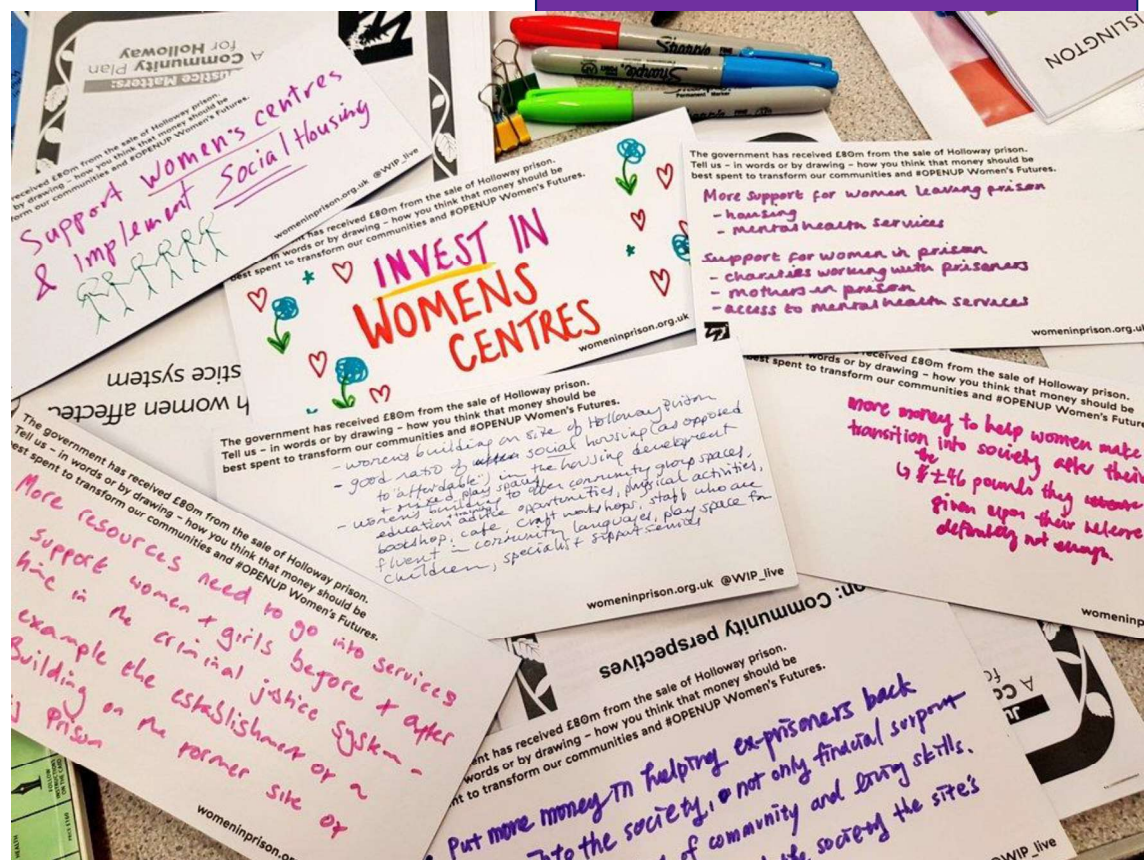 A
Community Plan
for Holloway
Justice Matters:
received £80m from the sale of Holloway prison.
by drawing – how you think that money should be
form our communities and #OPENUP Women's Futures.
Support Women's centres
& Implement Social Housing
womeninprison.org.uk @WIP_live
Sharpie
Sharpie
ISLINGTON
ment has received £80m from the sale of Holloway prison.
in words or by drawing – how you think that money should be
best spent to transform our communities and #OPENUP Women's Futures.
INVEST IN
WOMENS
CENTRES
womeninprison.org.uk
The government has received £80m from the sale of Holloway prison.
Tell us – in words or by drawing – how you think that money should be
best spent to transform our communities and #OPENUP Women's Futures.
More support for women leaving prison
- housing
- mental health services
Support for women in prison
- charities working with prisoners
- mothers in prison
- access to mental health services
womeninprison.org.uk
h women affected
stice system
The government has received £80m from the sale of Holloway prison.
Tell us – in words or by drawing – how you think that money should be
best spent to transform our communities and #OPENUP Women's Futures.
- womens building on site of Holloway Prison
- good ratio of social housing (as opposed
to "affordable") in the housing development
+ play space
- womens building to offer community group spaces,
education advice training opportunities, physical activities,
bookshop, cafe, craft workshops, staff who are
fluent in community languages, play space for
children, specialist support services
womeninprison.org.uk @WIP_live
received £80m from the sale of Holloway prison.
words or by drawing – how you think that money should be
best spent to transform our communities and #OPENUP Women's Futures
more money to help women make
transition into society after their
the
£46 pounds they
given upon their release
definitely not enough.
womeninp
The government has received £80m from the sale of Holloway prison.
Tell us – in words or by drawing – how you think that money should be
best spent to transform our communities and #OPENUP Women's Futures.
More resources need to go into services
support women + girls before + after
time in the criminal justice system -
example the establishment of a
Building on the former site of
Prison
womeninprison.or
on: Community perspectives
ent has received £80m from the sale of Holloway prison.
words or by drawing – how you think that money should be
nt to transform our communities and #OPENUP Women's Futures.
Put more money in helping ex-prisoners back
into the society, not only financial support
of community and living skills.
society the site's
WIP_live
A
FOLLOW
INSTRUCTIONS
ON THE CARD
HEALTH